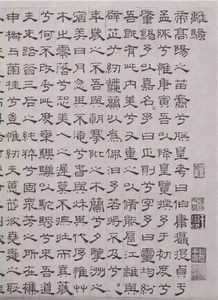 離騷
帝高陽之苗裔兮朕皇考曰伯庸攝提貞于
孟陬兮惟庚寅吾以降皇覽揆余于初度兮
肇錫余以嘉名名余曰正則兮字余曰靈均紛
吾既有此內美兮又重之以脩能扈江離與
辟芷兮紉秋蘭以為佩汩余若將不及兮恐
年歲之不吾與朝搴阰之木蘭兮夕攬洲之
宿莽日月忽其不淹兮春與秋其代序惟草
木之零落兮恐美人之遲暮不撫壯而棄穢
兮何不改乎此度乘騏驥以馳騁兮來吾道
夫先路昔三后之純粹兮固眾芳之所在雜
申椒與菌桂兮豈維紉夫蕙茝彼堯舜之耿